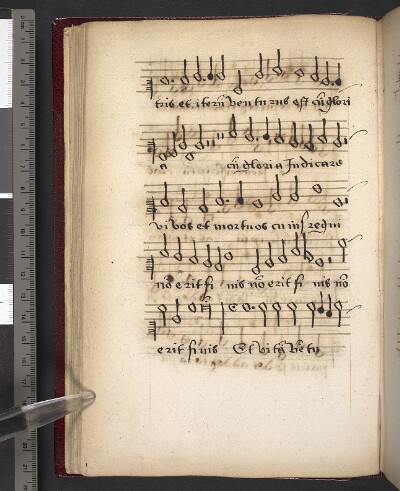 tris et iterũ venturus est cũ glori
a cũ gloria Iudicare
vivos et mortuos cuius regni
nõ erit fi nis nõ erit fi nis nõ
erit finis Et vitã